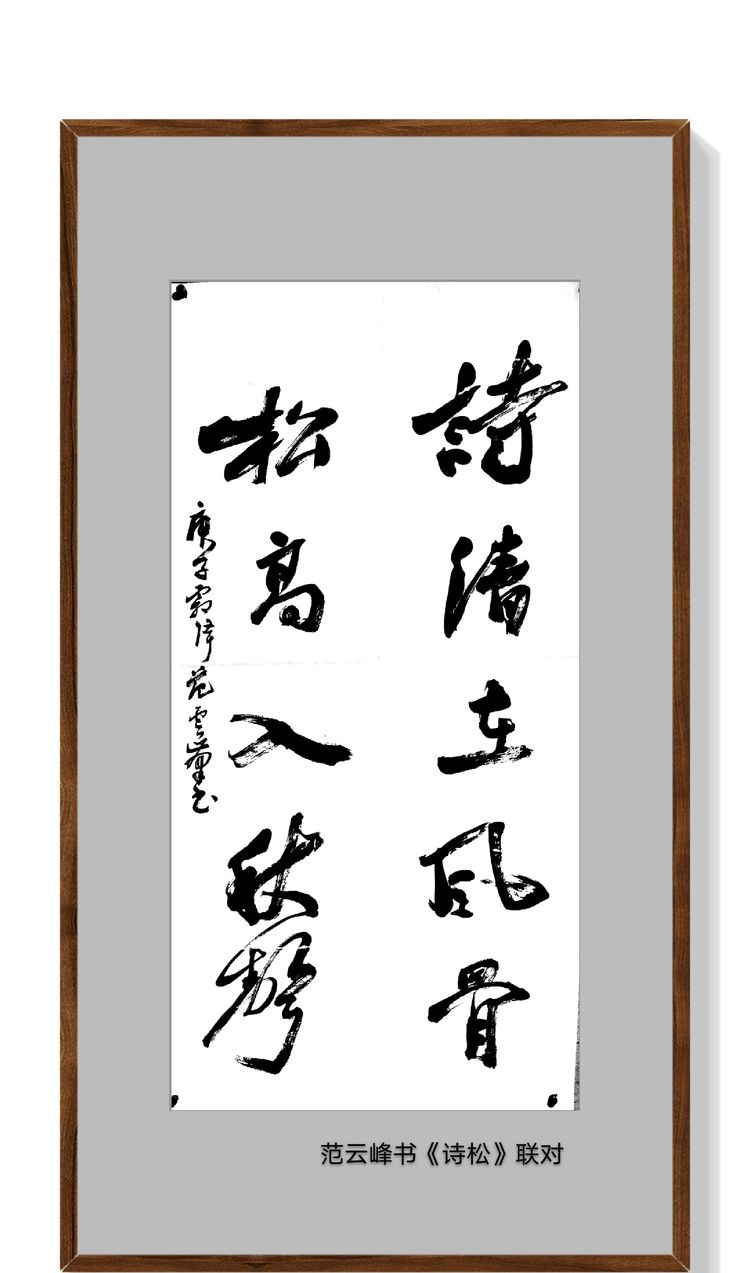 詩清在風骨
松高入秋聲
庚子霜降范雲峰书
范云峰书《诗松》联对